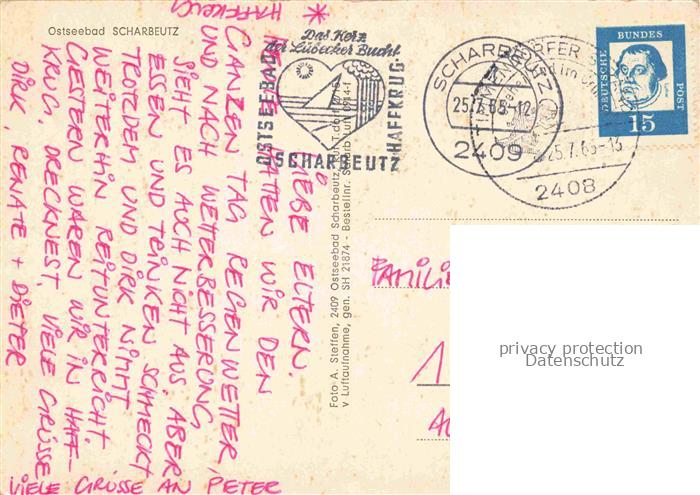 Ostseebad SCHARBEUTZ
HAFFKRUG
*
LIEBE ELTERN.
HEUTE HATTEN WIR DEN
GANZEN TAG REGENWETTER,
UND NACH WETTERBESSERUNG
SIEHT ES AUCH NICHT AUS. ABER
ESSEN UND TRINKEN SCHMECKT
TROTZDEM UND DIRK NIMMT
WEITERHIN REITUNTERRICHT.
GESTERN WAREN WIR IN HAFF-
KRUG. DRECKNEST. VIELE GRÜSSE
DIRK, RENATE + DIETER
VIELE GRÜSSE AN PETER
Foto A. Steffen, 2409 Ostseebad Scharbeutz,
v Luftaufnahme, gen. SH 21874 - Bestellnr.
Das Herz
der Lübecker Bucht
OSTSEEBAD
SCHARBEUTZ
HAFFKRUG
SCHARBEUTZ
25.7.65-12
2409
25.7.65-13
2408
DEUTSCHE BUNDESPOST
15
FAMILIE
1
privacy protection
Datenschutz